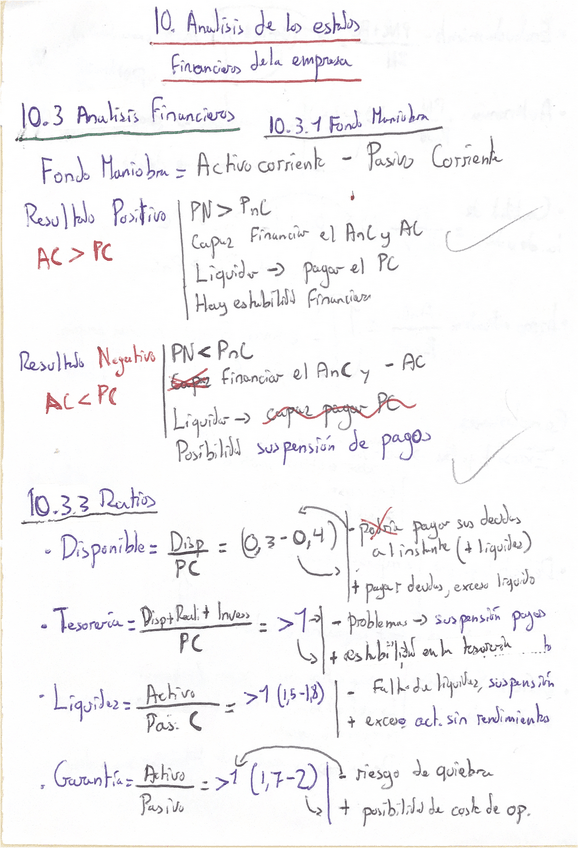 10. Analisis de los estados
Financieros de la empresa
10.3 Analisis Financieros 10.3.1 Fondo Maniobra
Fondo Maniobra = Activo corriente - Pasivo Corriente
Resultado Positivo PN > PnC
AC > PC Capaz Financiar el AnC y AC
Liquidez → pagar el PC
Hay estabilidad Financiera
Resultado Negativo PN < PnC
AC < PC Capaz Financiar el AnC y - AC
Liquidez → capaz pagar PC
Posibilidad suspensión de pagos
10.3.3 Ratios
· Disponible = Disp / PC = (0,3 - 0,4) - Podría pagar sus deudas
al instante (+ liquidez)
+ pagar deudas, exceso liquido
· Tesorería = Disp + Reali + Invers / PC = >1 - Problemas → suspensión pagos
+ estabilidad en la tesorería
· Liquidez = Activo / Pas. C = >1 (1,5-1,8) - Falta de liquidez, suspensión
+ exceso act. sin rendimiento
· Garantía = Activo / Pasivo = >1 (1,7-2) - riesgo de quiebra
+ posibilidad de coste de op.